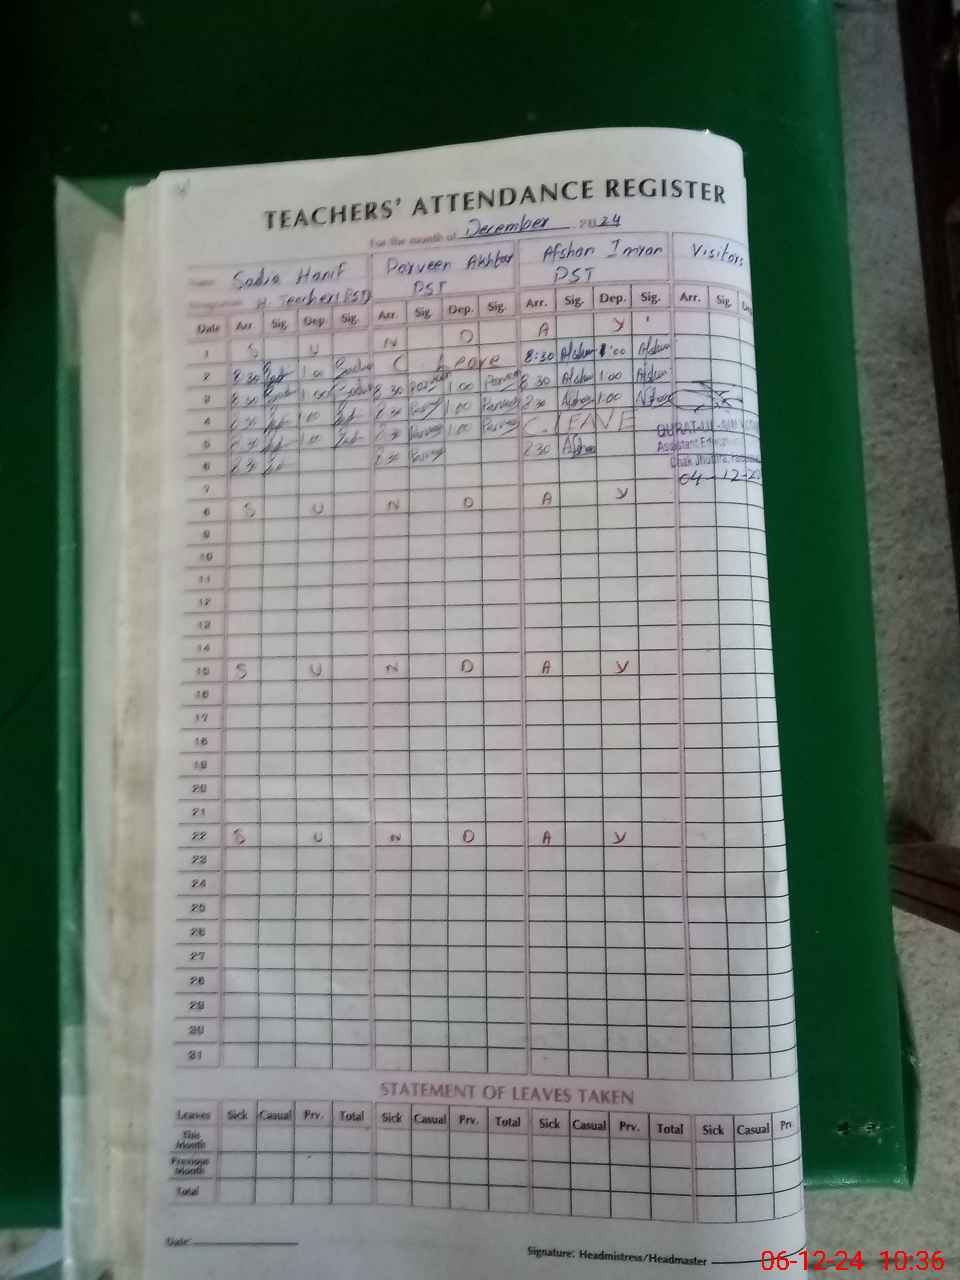 TEACHERS' ATTENDANCE REGISTER
For the month of December 2024
Name Sadia Hanif Parveen Akhtar Afshan Imran Visitors
Designation H. Teacher (PST) PST PST
Date Arr. Sig. Dep. Sig. Arr. Sig. Dep. Sig. Arr. Sig. Dep. Sig. Arr. Sig.
1 S U N D A Y
2 8 30 1 00 Sadia C. Leave 8:30 Afshan 1:00 Afshan
3 8 30 1 00 Sadia 8 30 1 00 8 30 Afshan 1 00 Afshan
4 8 30 1 00 8 30 1 00 8 30 Afshan 1 00 Afshan
5 8 30 1 00 8 30 1 00 C. LEAVE
6 8 30 8 30 8 30 Afshan
04-12-20
7
8 S U N D A Y
9
10
11
12
13
14
15 S U N D A Y
16
17
18
19
20
21
22 S U N D A Y
23
24
25
26
27
28
29
30
31
STATEMENT OF LEAVES TAKEN
Leaves Sick Casual Prv. Total Sick Casual Prv. Total Sick Casual Prv. Total Sick Casual Prv.
This Month
Previous Month
Total
Date:
Signature: Headmistress/Headmaster
06-12-24 10:36